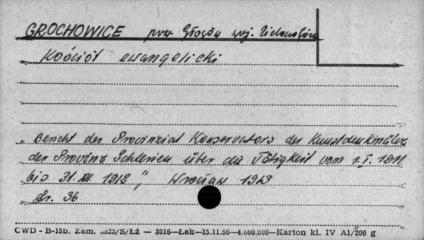 GROCHOWICE pow. Głogów woj. Zielonogór.
Kościół ewangelicki
„Bericht des Provinzial Konservators der Kunstdenkmäler
der Provinz Schlesien über die Tätigkeit vom 1.I. 1911
bis 31.XII 1913", Wrocław 1923
Str. 36
CWD - B-15b. Zam. S/Łż — 3016—Łak—15.11.56—4.000.000—Karton kl. IV A1/200 g